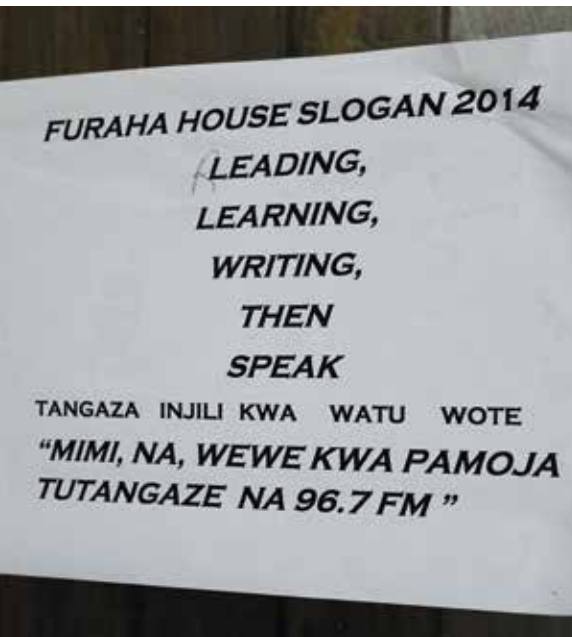 FURAHA HOUSE SLOGAN 2014
LEADING,
LEARNING,
WRITING,
THEN
SPEAK
TANGAZA INJILI KWA WATU WOTE
“MIMI, NA, WEWE KWA PAMOJA
TUTANGAZE NA 96.7 FM ”